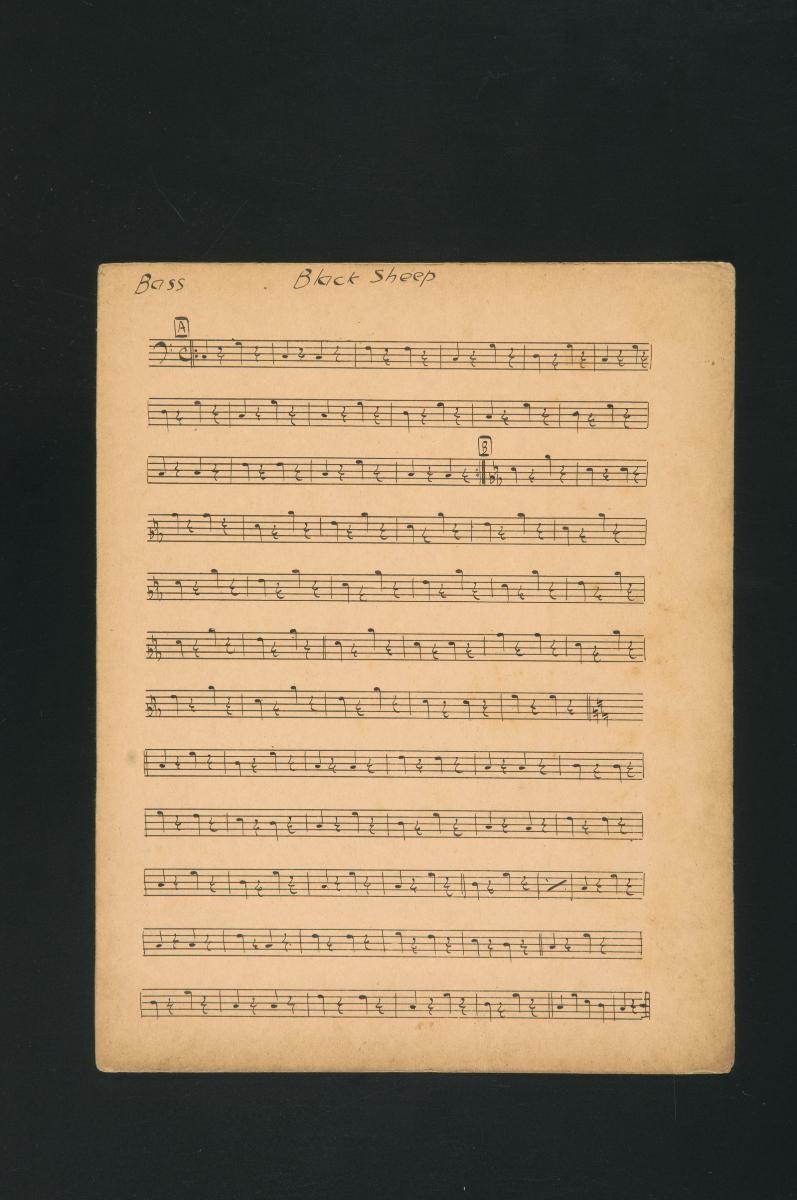 Bass Black Sheep
A
B